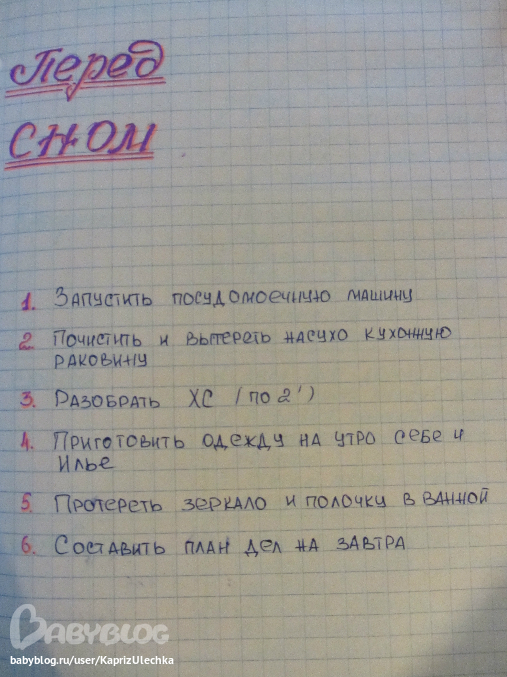 Перед
сном
1. Запустить посудомоечную машину
2. Почистить и вытереть насухо кухонную
раковину
3. Разобрать ХС (по 2')
4. Приготовить одежду на утро себе и
Илье
5. Протереть зеркало и полочку в ванной
6. Составить план дел на завтра
BABYBLOG
babyblog.ru/user/KaprizUlechka